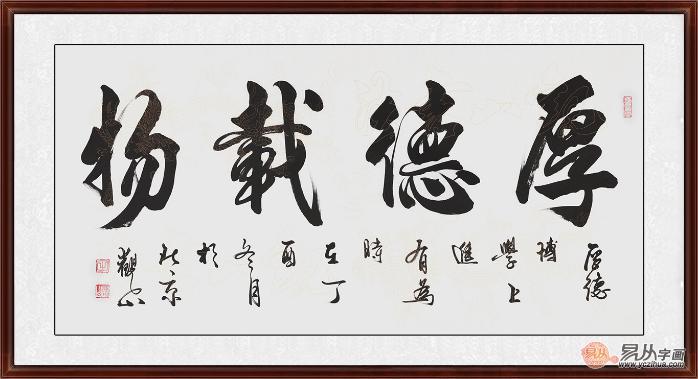 厚德載物
厚德
博
學上
進
有為
時
在丁
酉
冬月
於
北京
觀山
易从
易从字画
www.yczihua.com